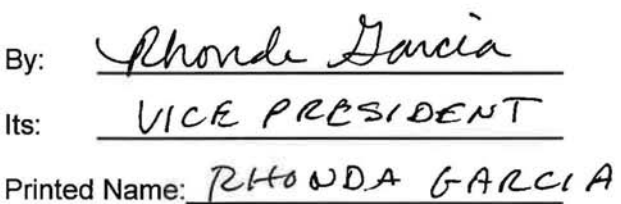 By: Rhonda Garcia
Its: VICE PRESIDENT
Printed Name: RHONDA GARCIA